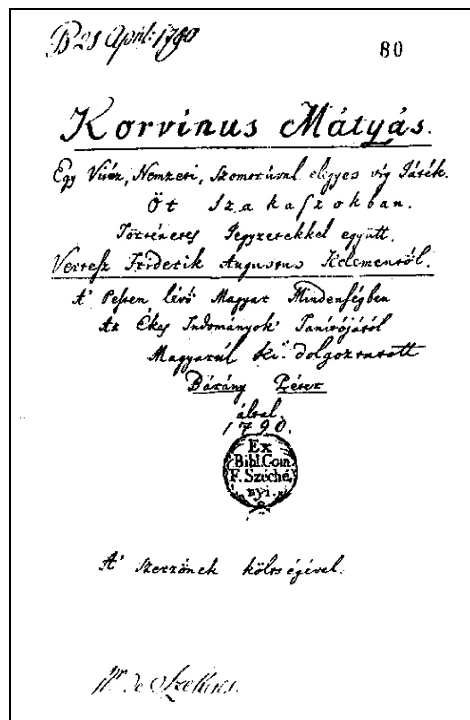 B 21 April: 1790
80
Korvinus Mátyás.
Egy Vitéz, Nemzeti, Szomorúval elegyes víg Játék.
Öt Szakaszokban.
Történetes Jegyzetekkel együtt.
Vertesz Friderik Augustus Kelementől.
A' Pesten lévő Magyar Mindenségben
Az Ékes Tudományok' Tanítójától
Magyarúl ki dolgoztatott
Bárány Péter
által.
1790.
Ex
Bibl. Com.
F. Széché,
nyi.
A' szerzőnek költségével.